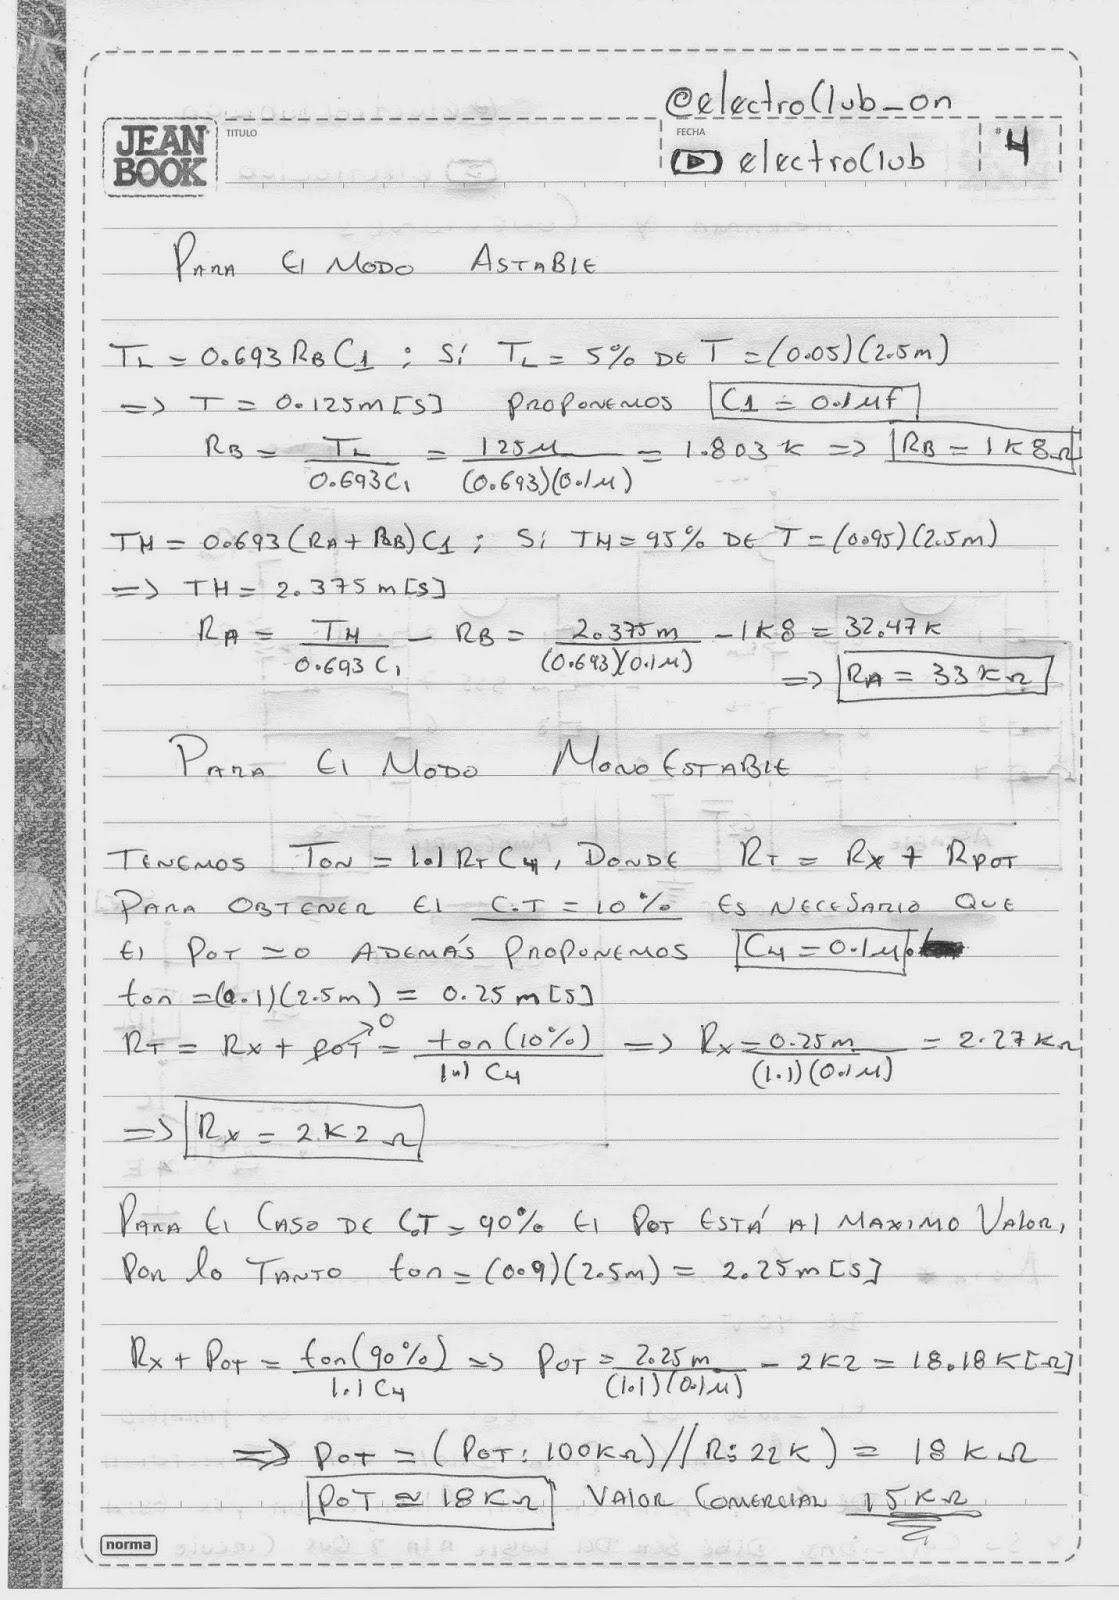 @electroClub_on
JEAN BOOK
TITULO
FECHA
electroClub
# 4
PARA El MODO ASTABlE
TL = 0.693 RB C1 ; Sí TL = 5% DE T = (0.05)(2.5m)
=> T = 0.125m[s] PROPONEMOS C1 = 0.1μf
RB = TL / 0.693C1 = 125μ / (0.693)(0.1μ) = 1.803 K => RB = 1K8Ω
TH = 0.693(RA + RB)C1 ; Sí TH = 95% DE T = (0.95)(2.5m)
=> TH = 2.375m[s]
RA = TH / 0.693 C1 - RB = 2.375m / (0.693)(0.1μ) - 1K8 = 32.47K
=> RA = 33KΩ
PARA El MODO MONOESTABlE
TENEMOS TON = 1.1 RT C4, DONDE RT = RX + RPOT
PARA OBTENER El C.T = 10% ES NECESARIO QUE
El POT = 0 ADEMÁS PROPONEMOS C4 = 0.1μ.
ton = (0.1)(2.5m) = 0.25m[s]
RT = RX + POT→0 = ton(10%) / 1.1 C4 => RX = 0.25m / (1.1)(0.1μ) = 2.27KΩ
=> RX = 2K2Ω
PARA El CASO DE C.T = 90% El POT ESTÁ Al MAXIMO VAlOR,
POR lo TANTO ton = (0.9)(2.5m) = 2.25m[s]
RX + POT = ton(90%) / 1.1 C4 => POT = 2.25m / (1.1)(0.1μ) - 2K2 = 18.18K[Ω]
=> POT = (POT: 100KΩ) // (R: 22K) = 18KΩ
POT ≃ 18KΩ VAlOR COMERCIAl 15KΩ
norma